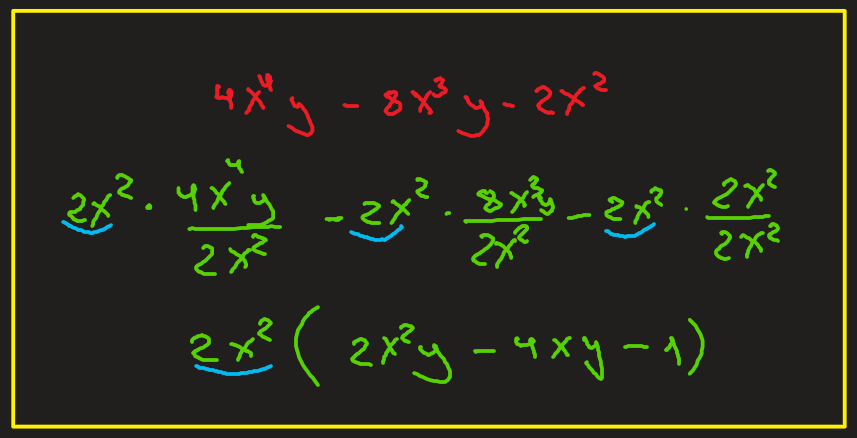 4x⁴y - 8x³y - 2x²
2x² · 4x⁴y/2x² - 2x² · 8x³y/2x² - 2x² · 2x²/2x²
2x² (2x²y - 4xy - 1)